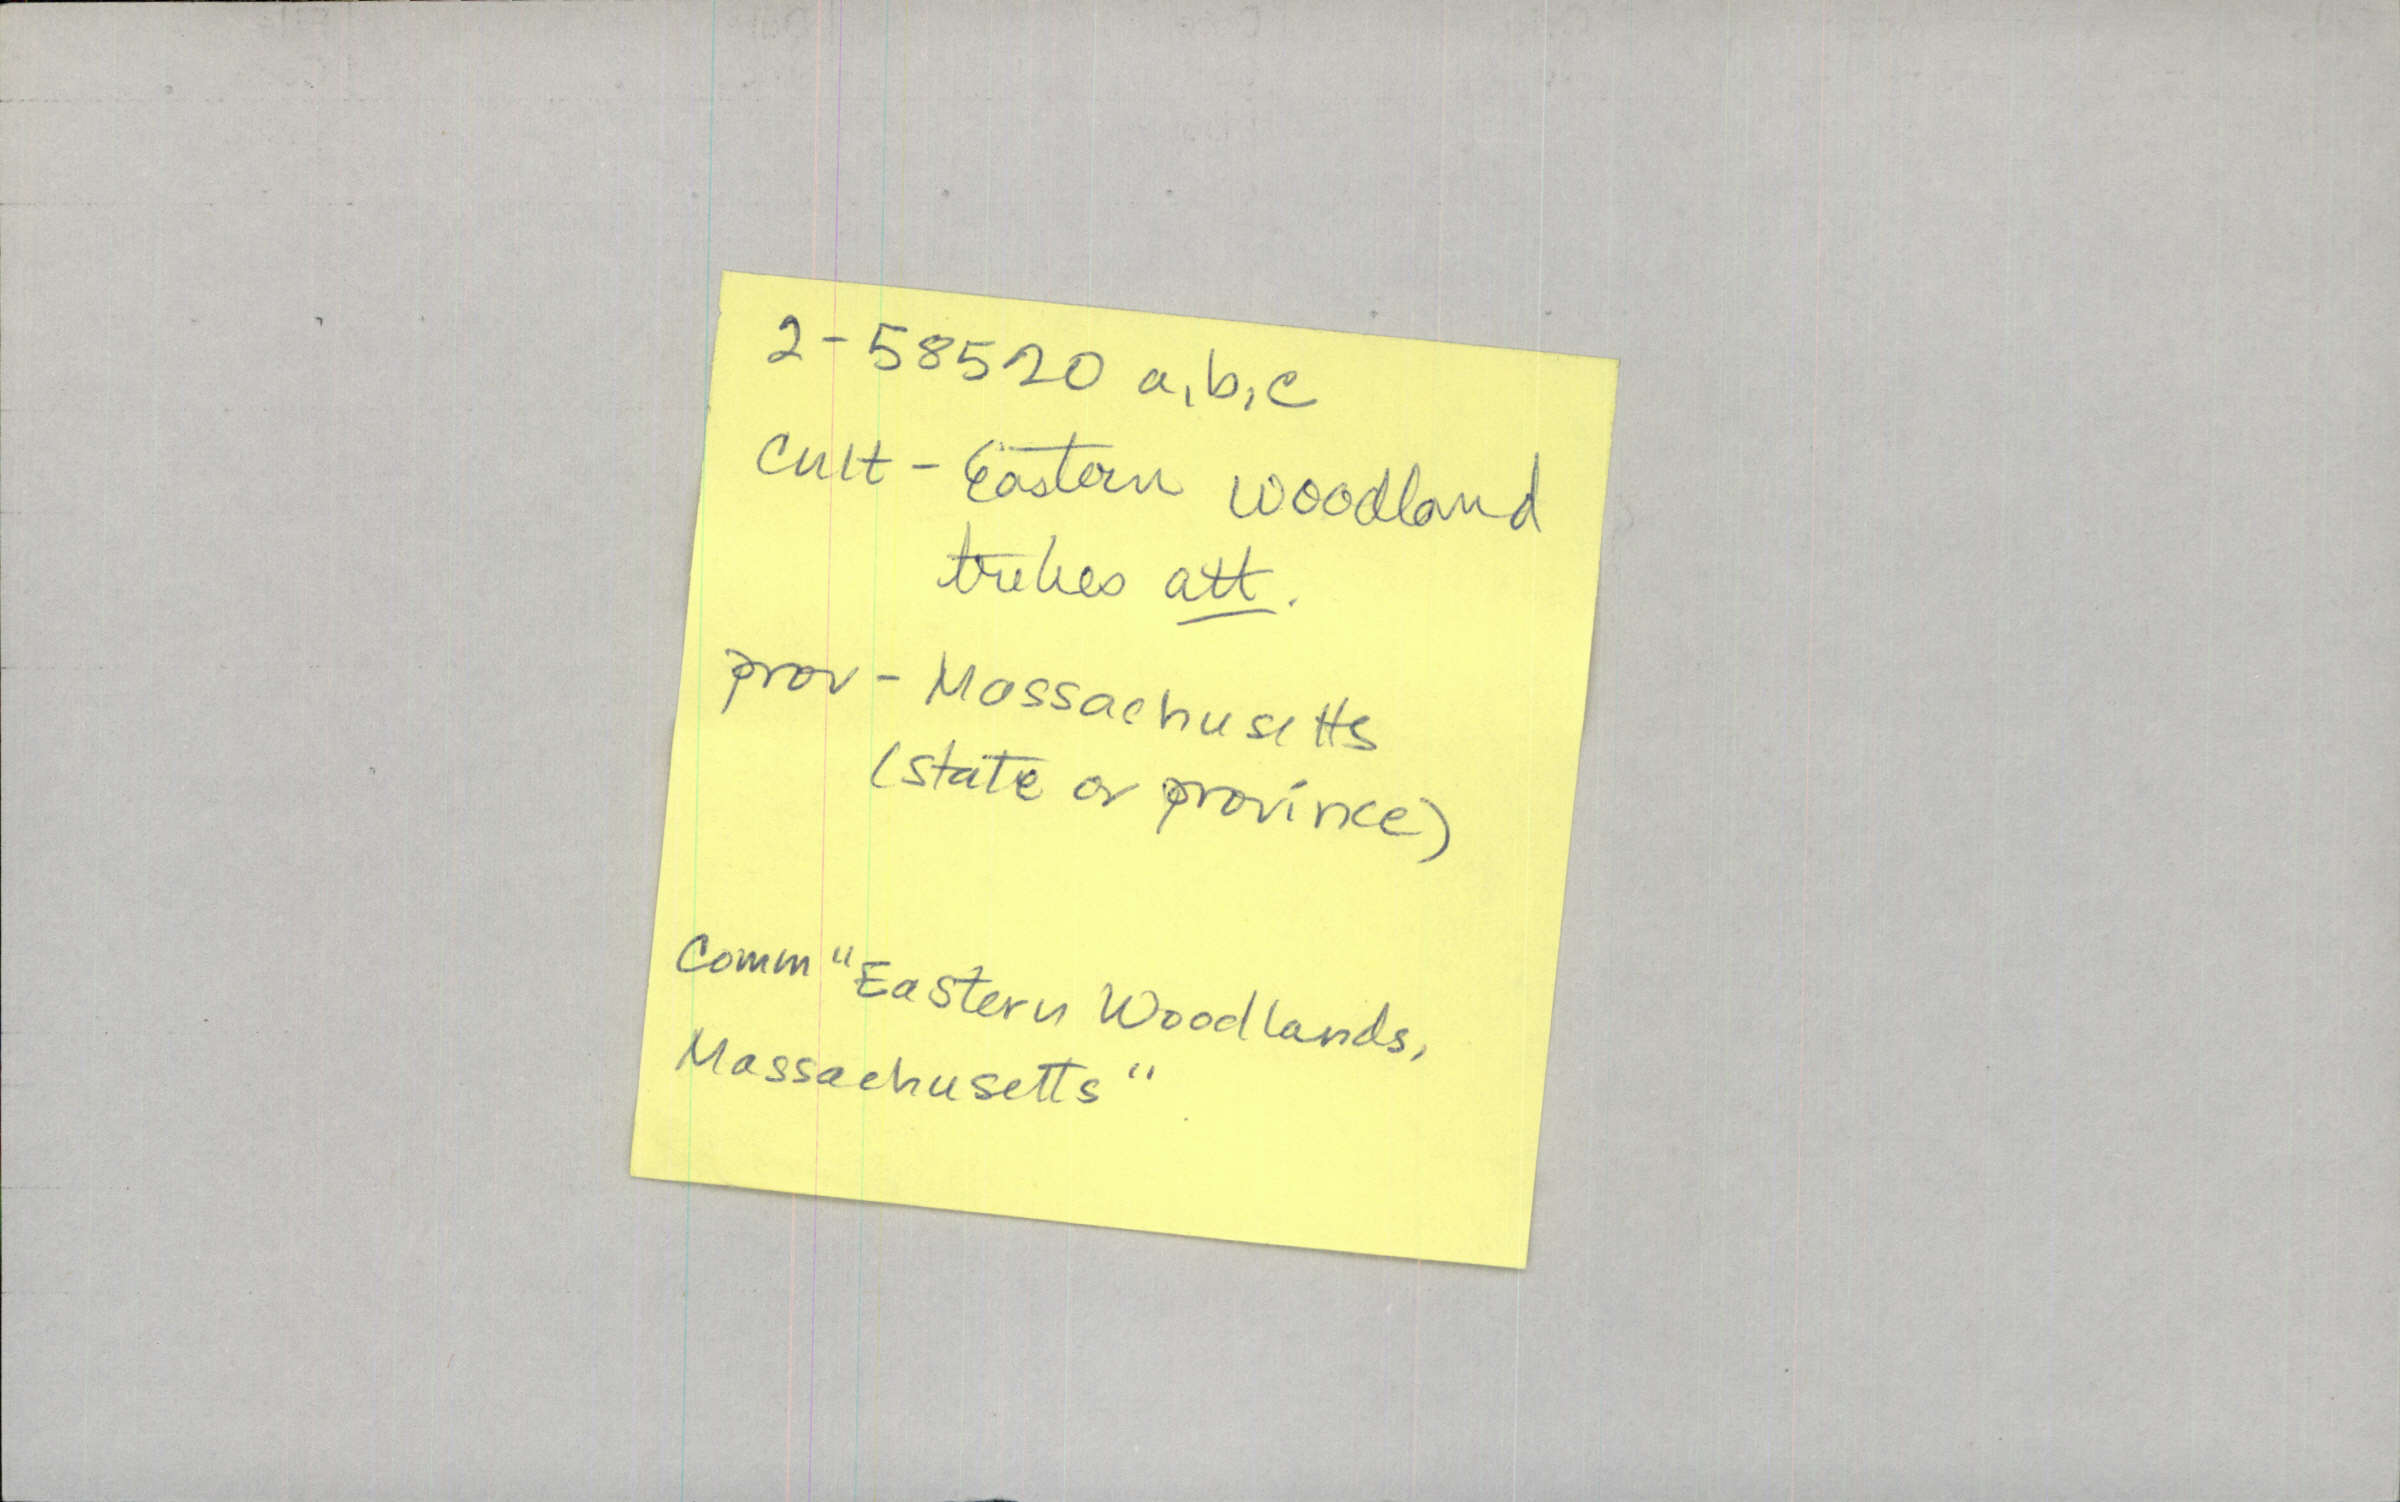 2-58520 a,b,c
Cult - Eastern Woodland
tribes att.
prov - Massachusetts
(state or province)
Comm "Eastern Woodlands,
Massachusetts"